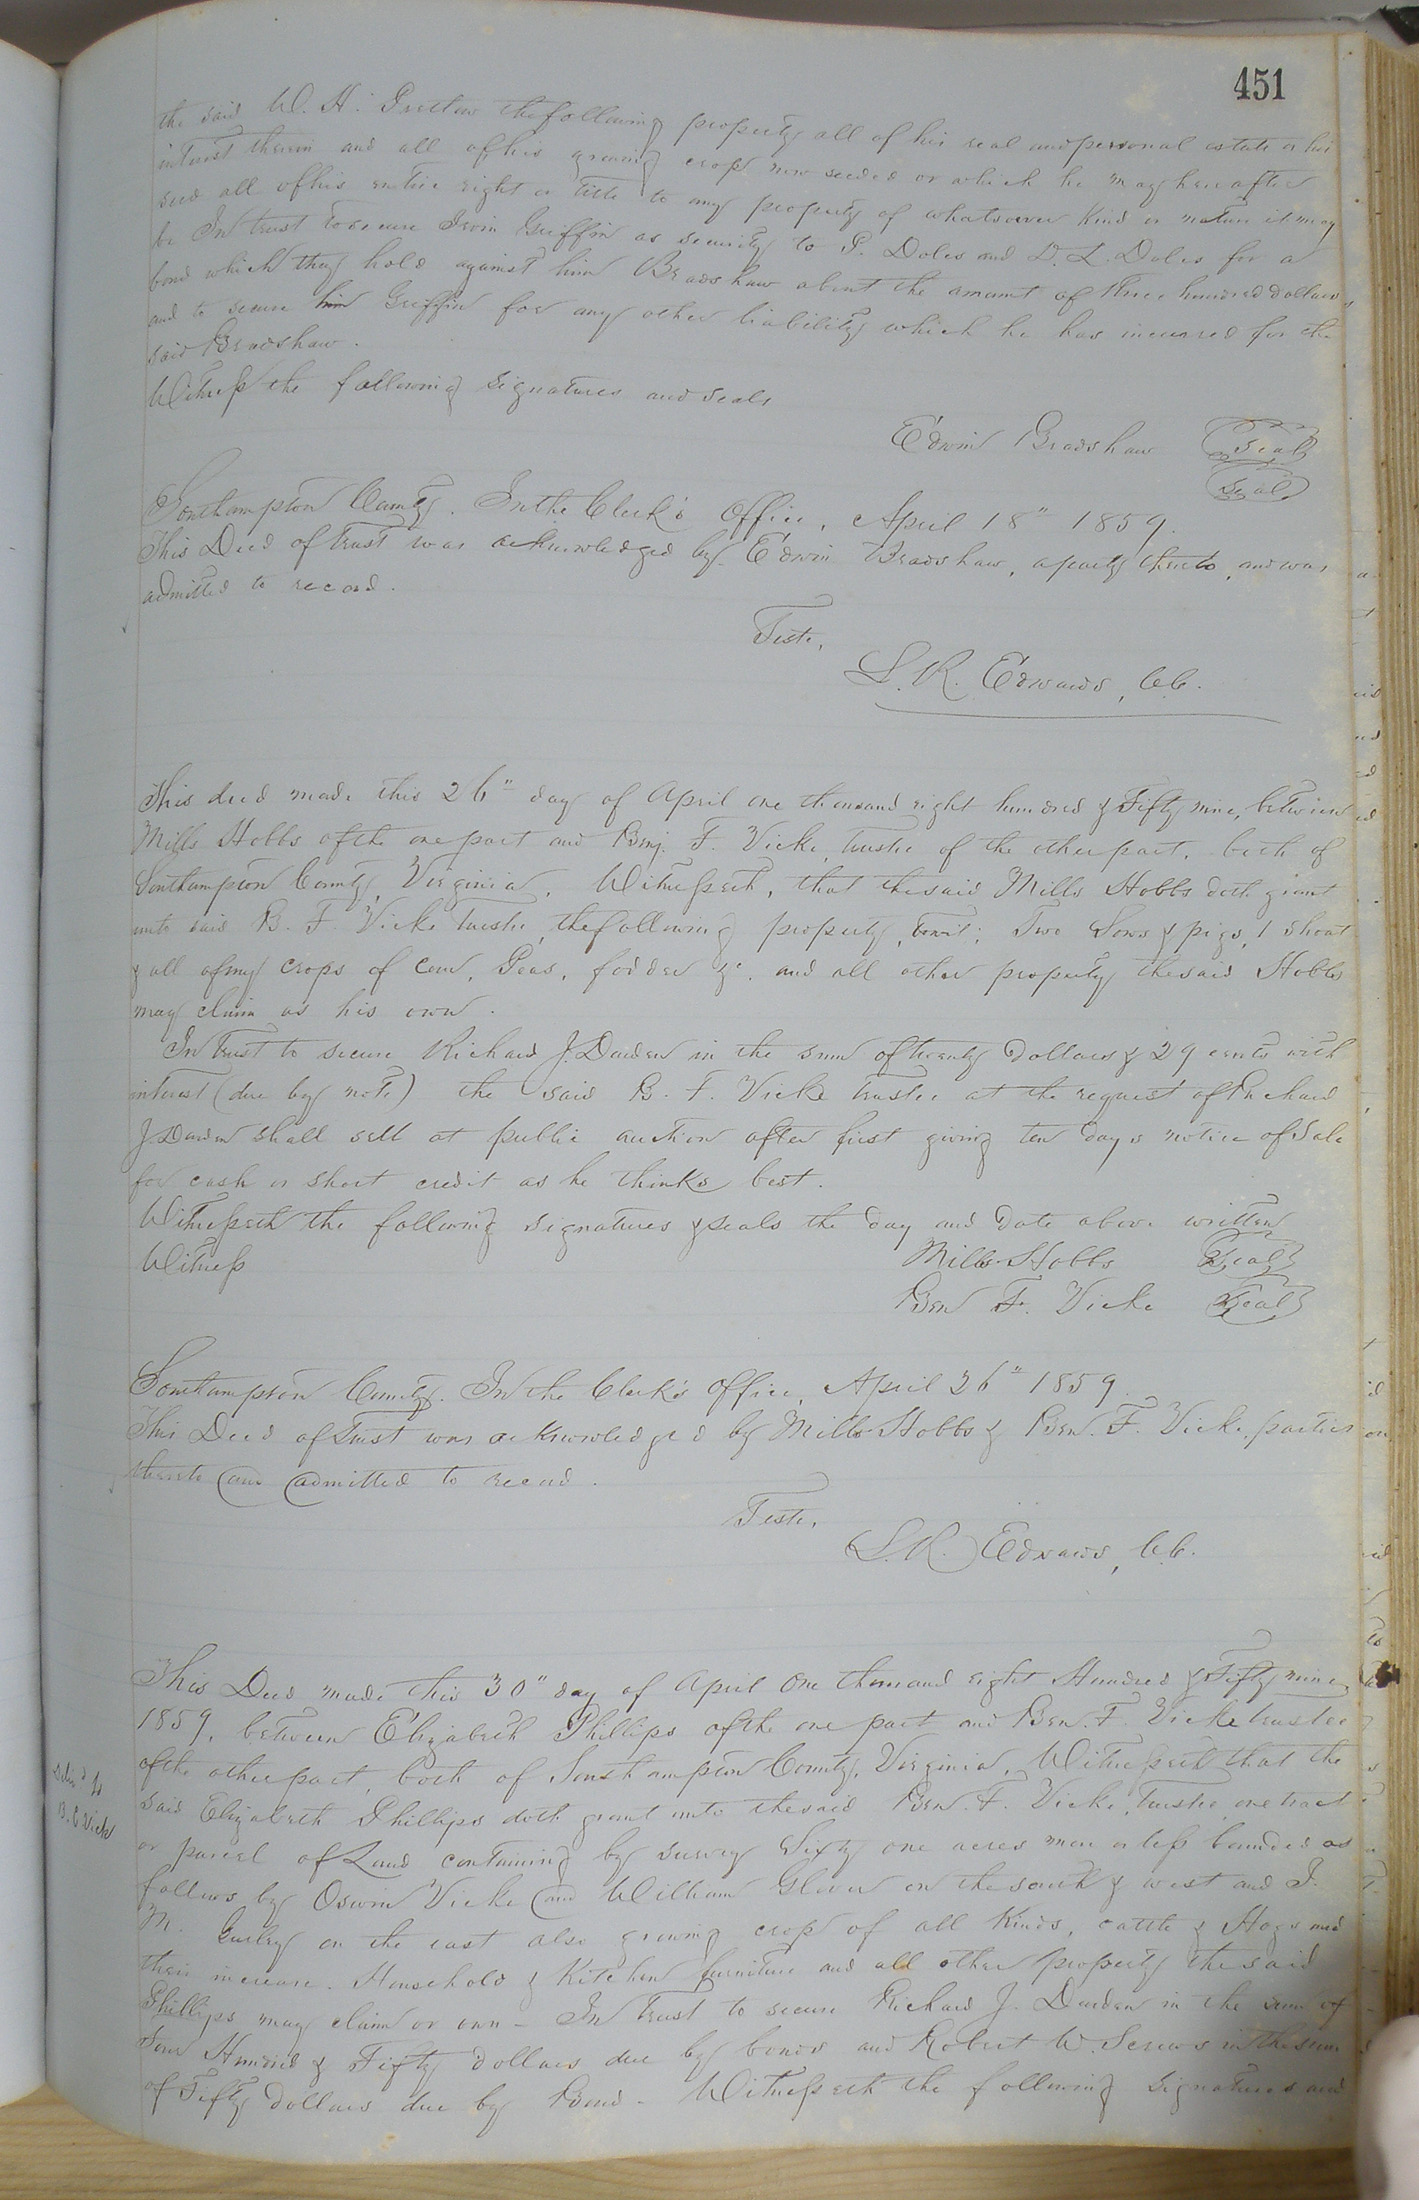 451
the said W. H. the following property all of his real and personal estate or his
interest therein and all of his growing crop now seeded or which he may hereafter
seed all of his entire right or title to any property of whatsoever kind or nature it may
be In trust to secure Irvin Griffin as security to P. Doles and D. L. Doles for a
bond which they hold against him Bradshaw about the amount of three hundred dollars,
and to secure him Griffin for any other liability which he has incurred for the
said Bradshaw.
Witness the following signatures and seals
Edwin Bradshaw Seal
Seal
Southampton County. In the Clerk's Office, April 18" 1859.
This Deed of trust was acknowledged by Edwin Bradshaw, a party thereto, and was
admitted to record.
Teste,
L. R. Edwards, C.C.
This deed made this 26" day of April one thousand eight hundred & Fifty nine, between
Mills Hobbs of the one part and Benj. F. Vicke, trustee of the other part, both of
Southampton County, Virginia, Witnesseth, that the said Mills Hobbs doth grant
unto said B. F. Vicke trustee, the following property, towit; Two Sows & pigs, 1 shoat
& all of my crops of corn, Peas, fodder &c. and all other property the said Hobbs
may claim as his own.
In Trust to secure Richard J. Darden in the sum of twenty dollars & 29 cents with
interest (due by note) the said B. F. Vicke trustee at the request of Richard
J Darden shall sell at public auction after first giving ten days notice of Sale
for cash or short credit as he thinks best.
Witnesseth the following signatures & seals the day and date above written
Witness Mills Hobbs Seal
Ben F. Vicke Seal
Southampton County. In the Clerk's Office, April 26" 1859.
This Deed of Trust was acknowledged by Mills Hobbs & Ben. F. Vicke, parties
thereto and admitted to record.
Teste,
L. R. Edwards, C.C.
This Deed made this 30" day of April One thousand eight Hundred & Fifty nine
1859, between Elizabeth Phillips of the one part and Ben. F. Vicke trustee
of the other part, both of Southampton County, Virginia, Witnesseth that the
said Elizabeth Phillips doth grant unto the said Ben. F. Vicke, Trustee, one tract
or parcel of Land containing by survey Sixty one acres more or less bounded as
follows by Oswin Vicke and William Glover on the south & west and J.
M. Gurley on the east also growing crop of all Kinds, cattle & Hogs and
their increase. Household & Kitchen furniture and all other property the said
Phillips may claim or own - In Trust to secure Richard J. Darden in the sum of
Four Hundred & Fifty dollars due by bonds and Robert W. Screws in the sum
of Fifty Dollars due by Bond. Witnesseth the following signatures and
Deliv'd to
B. Vick